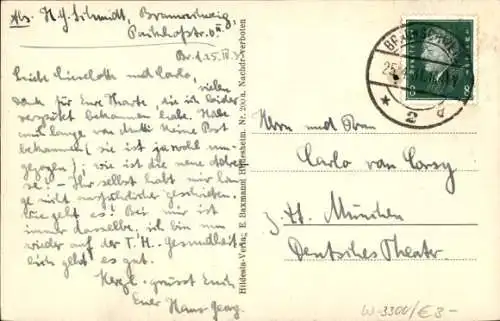 Abs. H. G. Schmidt, Braunschweig,
Parkhofstr. 5 II
Br. d. 25. IV. 3
Liebe Lieselotte und Carlo, vielen
Dank für Eure Karte, die ich leider
verspätet bekommen habe. Habe
lange von Mutti keine Post
bekommen (sie ist ja wohl um-
gezogen); wie ist die neue Adres-
se? – Ihr selbst habt mir lan-
ge nicht ausführlicher geschrieben.
Wie geht es? Bei mir ist
immer dasselbe, ich bin nun
wieder auf der T. H. Gesundheit-
lich geht es gut.
Herzl. grüsst Euch
Euer Hans-Georg.
Hildesia-Verlag, E. Baxmann, Hildesheim. Nr. 200a. Nachdr. verboten
BRAUNSCHWEIG
8 8
Herrn und Frau
Carlo van Corsy
München
Deutsches Theater
W-3300/€ 3-